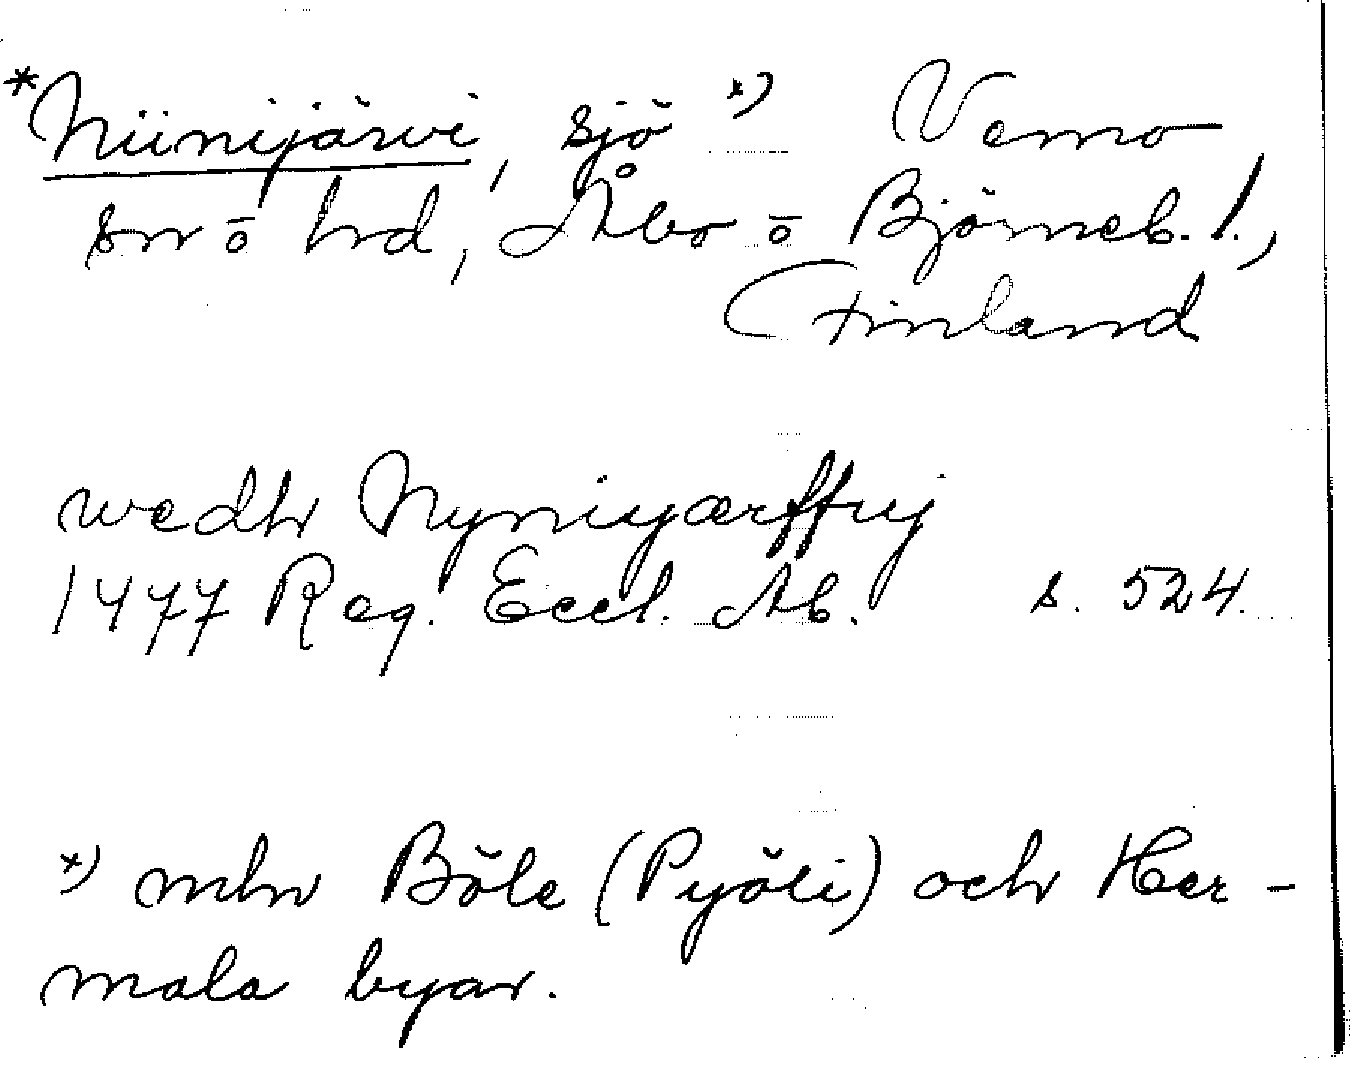 *Niinijärvi, sjö *) Vemo
sn ō hd, Åbo ō Björneb. l.,
Finland
vedh Nyniyærffuj
1477 Reg. Eccl. Ab. s. 524.
*) mln Böle (Pyöli) och Her-
mala byar.